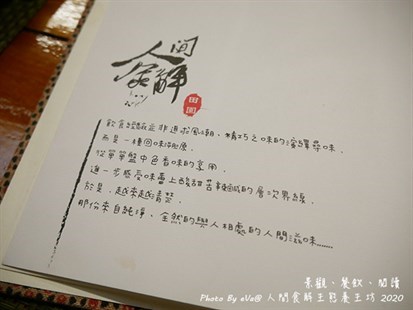 人间
食解
田園
飲食
非追求風潮，精巧之味的演譯尋味，
而是一種回味
從單單盤中色香味的享用，
進一步感受味蕾上酸甜苦辣鹹的層次界線，
於是，越來越清楚，
那份來自純淨，全然的與人相處的人間滋味......
景觀、餐飲、閱讀
Photo By eVa@ 人間食解主題養生坊 2020